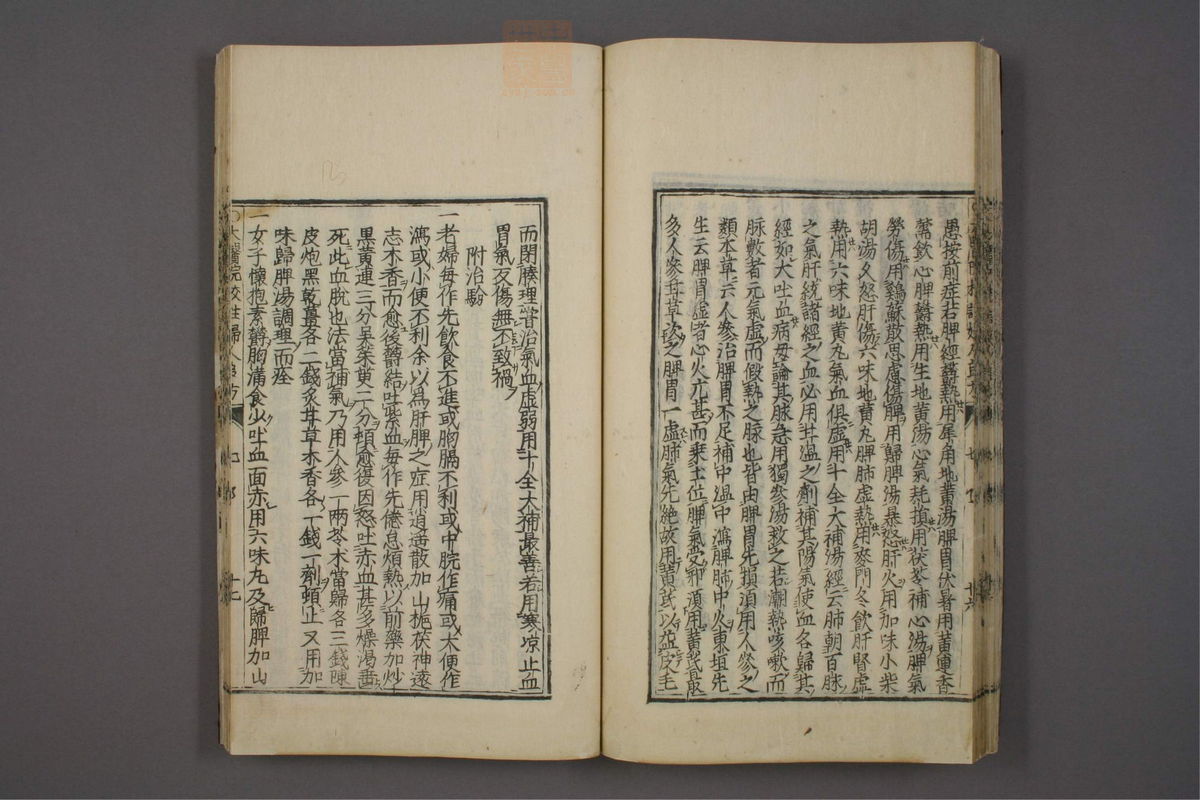 愚按前症若脾經鬱熱用犀角地黃湯脾胃伏暑用黃連香
薷飲心脾鬱熱用生地黃湯心氣耗損用茯苓補心湯脾氣
勞傷用鷄蘇散思慮傷脾用歸脾湯暴怒肝火用加味小柴
胡湯久怒肝傷六味地黃丸脾肺虛熱用麥門冬飲肝腎虛
熱用六味地黃丸氣血俱虛用十全大補湯經云肺朝百脉
之氣肝統諸經之血必用甘温之劑補其陽氣使血各歸其
經如大吐血病毋論其脉急用獨參湯救之若潮熱咳嗽而
脉數者元氣虛而假熱之脉也皆由脾胃先損須用人參之
類本草云人參治脾胃不足補中温中瀉脾肺中火東垣先
生云脾胃虛者心火亢甚而乘土位脾氣受邪須用黃芪最
多人參甘草次之脾胃一虛肺氣先絶故用黃芪以益皮毛
而閉腠理當治氣血虛弱用十全大補最善若用寒凉止血
胃氣反傷無不致禍
附治驗
一老婦每作先飲食不進或胸膈不利或中脘作痛或大便作
瀉或小便不利余以為肝脾之症用逍遥散加山梔茯神遠
志木香而愈後鬱結吐紫血每作先倦怠煩熱以前藥加炒
黑黃連三分吳茱萸二分頓愈復因怒吐赤血甚多燥渴垂
死此血脫也法當補氣乃用人參一兩苓木當歸各三錢陳
皮炮黑乾薑各二錢炙甘草木香各一錢一劑頓止又用加
味歸脾湯調理而痊
一女子懷抱素鬱胸滿食少吐血面赤用六味丸及歸脾加山